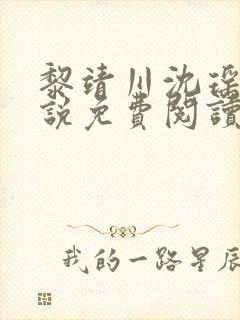 黎靖川沈瑶
說免費閱讀
我的一路星辰